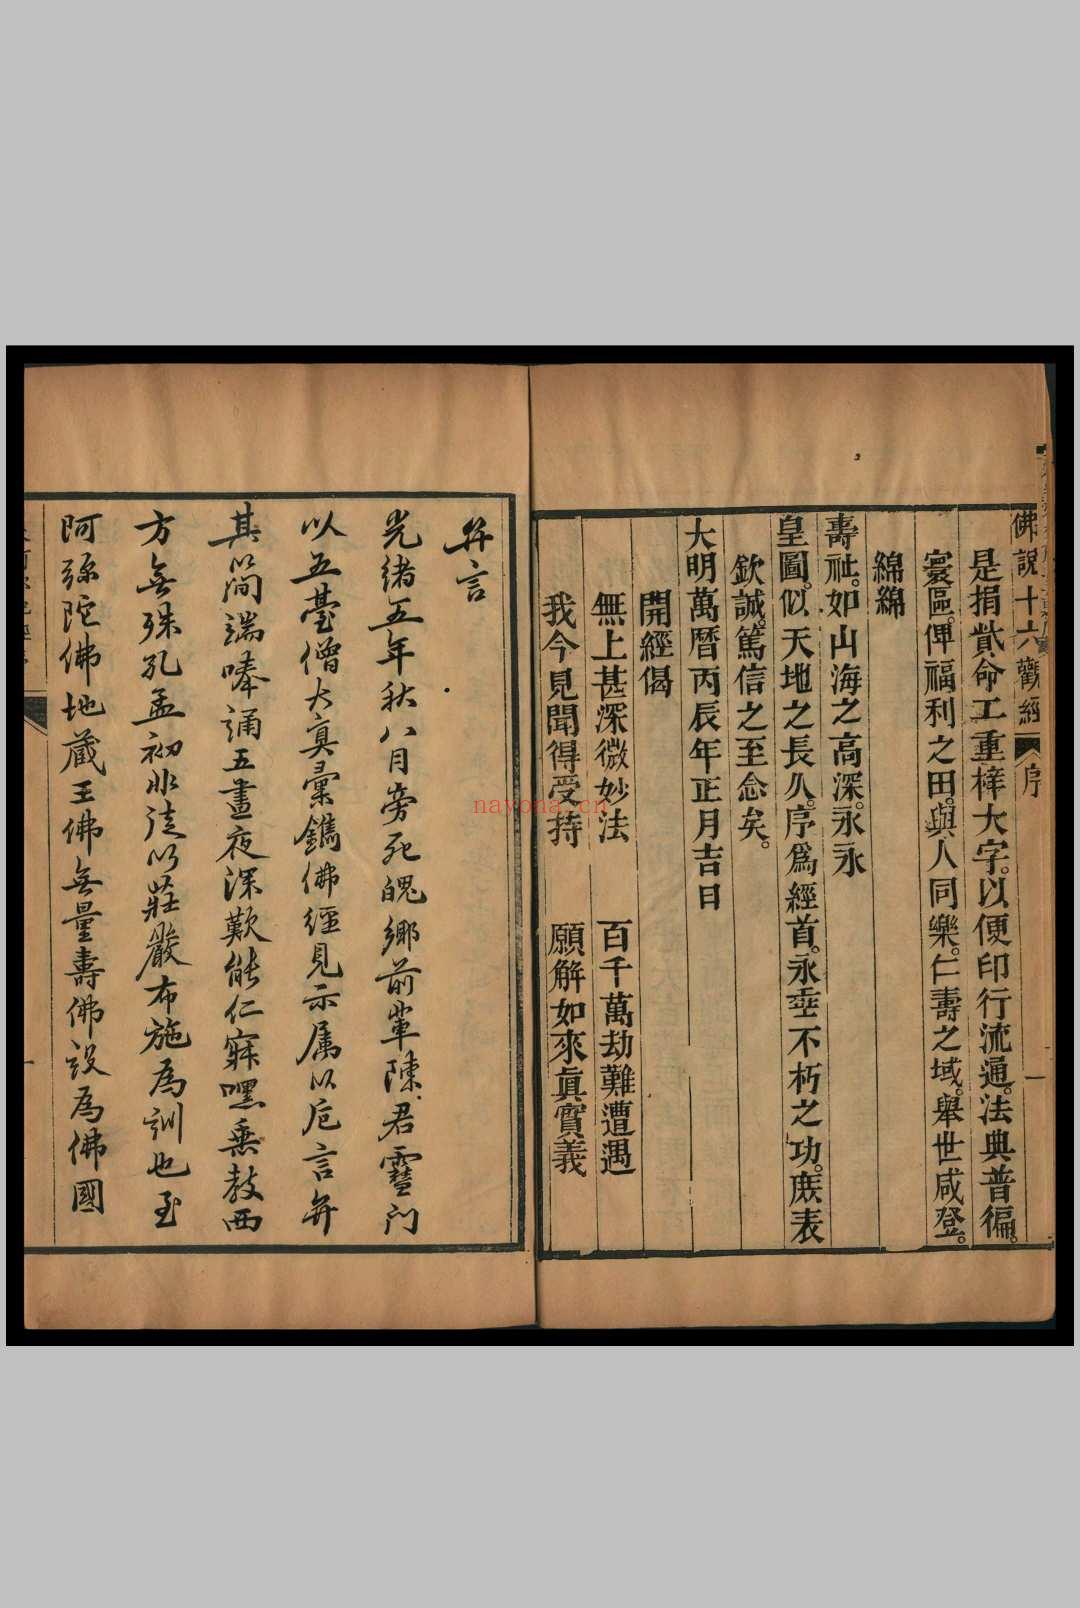 佛說十六觀經 序 一
是捐貲命工重梓大字。以便印行流通。法典普徧。
寰區。俾福利之田。與人同樂。仁壽之域。舉世咸登。
綿綿
壽祉。如山海之高深。永永
皇圖。似天地之長久。序爲經首。永垂不朽之功。庻表
欽誠。篤信之至念矣。
大明萬曆丙辰年正月吉日
開經偈
無上甚深微妙法 百千萬劫難遭遇
我今見聞得受持 願解如來眞實義
弁言
光緒五年秋八月旁死魄鄉前輩陳君靈門
以五臺僧大真彙鐫佛經見示属以卮言弁
其簡端唪誦五晝夜深歎能仁寂嘿垂教西
方無殊孔孟初非徒以莊嚴布施為訓也至
阿彌陀佛地蔵王佛無量壽佛設為佛國
一
nayona.cn